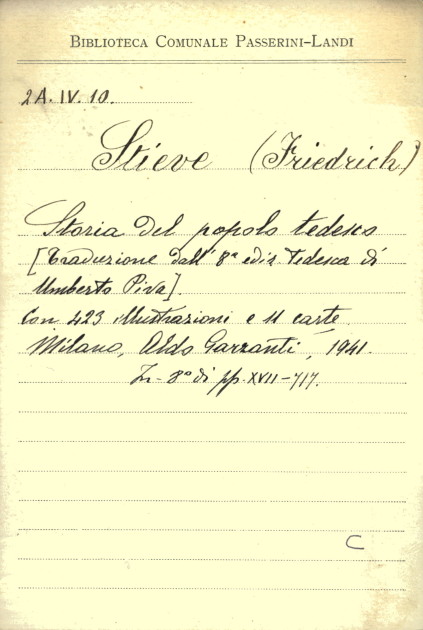 BIBLIOTECA COMUNALE PASSERINI-LANDI
2A. IV. 10.
Stieve (Friedrich)
Storia del popolo tedesco
[Traduzione dall' 8ª ediz tedesca di
Umberto Piva].
Con 423 illustrazioni e 11 carte.
Milano, Aldo Garzanti, 1941.
In-8º di pp. XVII-717.
C